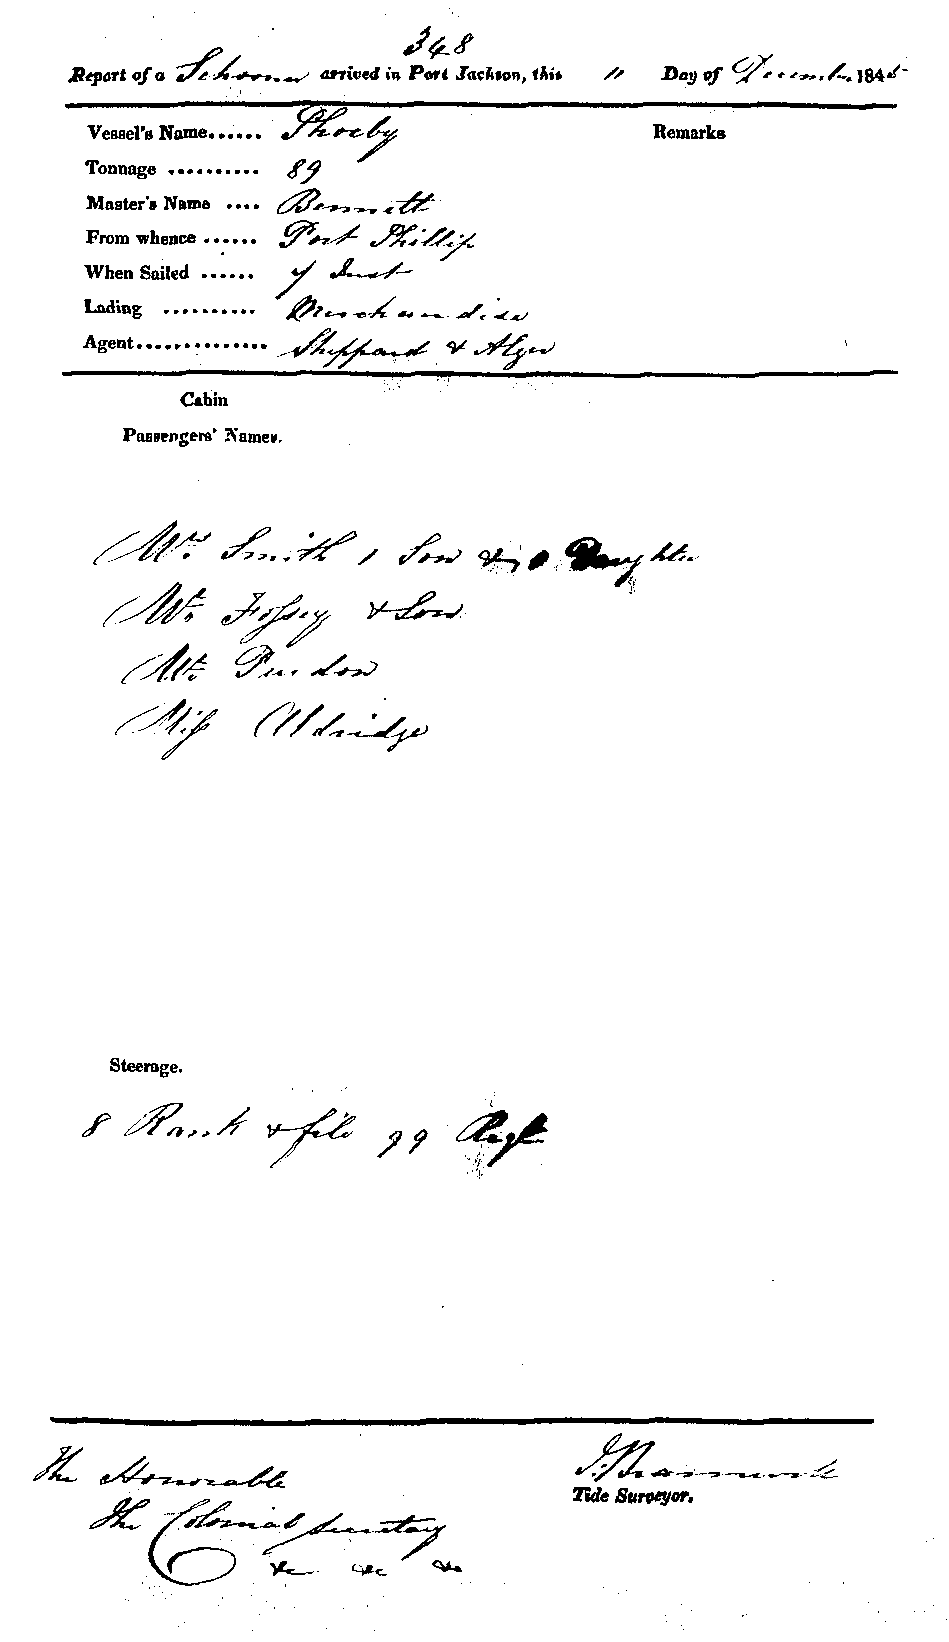 348
Report of a Schooner arrived in Port Jackson, this 11 Day of December 1845
Vessel's Name...... Phoeby Remarks
Tonnage .......... 89
Master's Name .... Bennett
From whence ...... Port Phillip
When Sailed ...... 4 Inst
Lading .......... Merchandise
Agent.............. Sheppard & Alger
Cabin
Passengers' Names.
Mr. Smith 1 Son & Daughter
Mr. Fossey & Son
Mr. Purdon
Miss Aldridge
Steerage.
8 Rank & file 99 Regt
The Honorable
The Colonial Secretary
&c &c &c
Tide Surveyor.